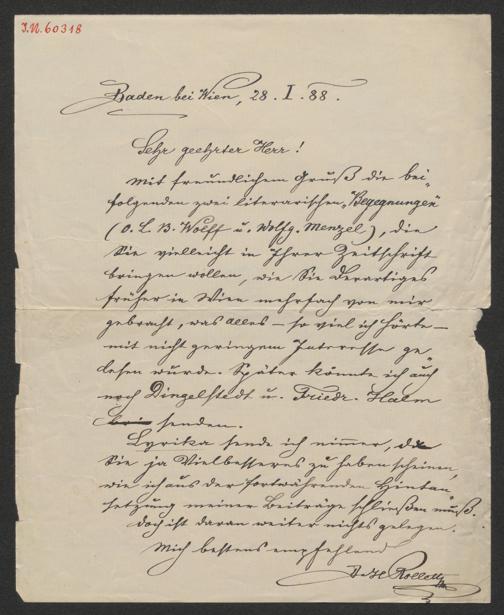 I.N. 60318
Baden bei Wien, 28. I. 88.
Sehr geehrter Herr!
Mit freundlichem Gruß die bei-
folgenden zwei literarischen „Begegnungen"
(O. L. B. Wolff u. Wolfg. Menzel), die
Sie vielleicht in Ihrer Zeitschrift
bringen wollen, wie Sie Derartiges
früher in Wien mehrfach von mir
gebracht, was alles – so viel ich hörte –
mit nicht geringem Interesse ge-
lesen wurde. Später könnte ich auch
noch Dingelstedt u. Friedr. Halm
senden.
Lyrika sende ich nimmer, da
Sie ja Vielbesseres zu haben scheinen,
wie ich aus der fortwährenden Hintan-
setzung meiner Beiträge schließen muß.
Doch ist daran weiter nichts gelegen.
Mich bestens empfehlend
Dr H Rollett